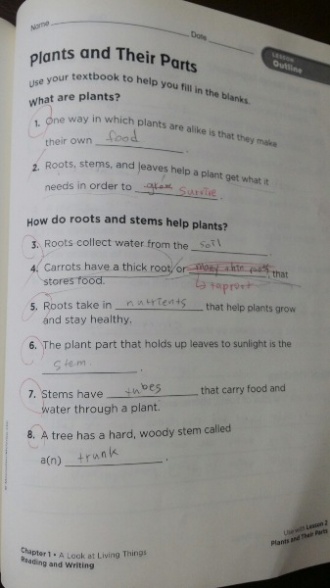 Name
Date
LESSON
Outline
Plants and Their Parts
Use your textbook to help you fill in the blanks.
What are plants?
1. One way in which plants are alike is that they make
their own food.
2. Roots, stems, and leaves help a plant get what it
needs in order to survive.
How do roots and stems help plants?
3. Roots collect water from the soil.
4. Carrots have a thick root, or that
stores food.
↳ taproot
5. Roots take in nutrients that help plants grow
and stay healthy.
6. The plant part that holds up leaves to sunlight is the
stem.
7. Stems have tubes that carry food and
water through a plant.
8. A tree has a hard, woody stem called
a(n) trunk.
Chapter 1 • A Look at Living Things
Reading and Writing
Use with Lesson 2
Plants and Their Parts